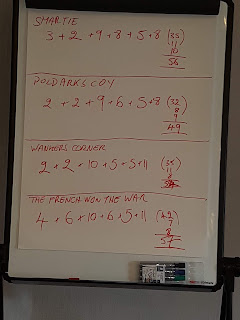 SMARTIE
3 + 2 + 9 + 8 + 5 + 8 (35
11
10
56
POLDARKS COY
2 + 2 + 9 + 6 + 5 + 8 (32
8
9
49
WANKERS CORNER
2 + 2 + 10 + 5 + 5 + 11 (35
11
8
THE FRENCH WON THE WAR
4 + 6 + 10 + 6 + 5 + 11 (42
7
8
57